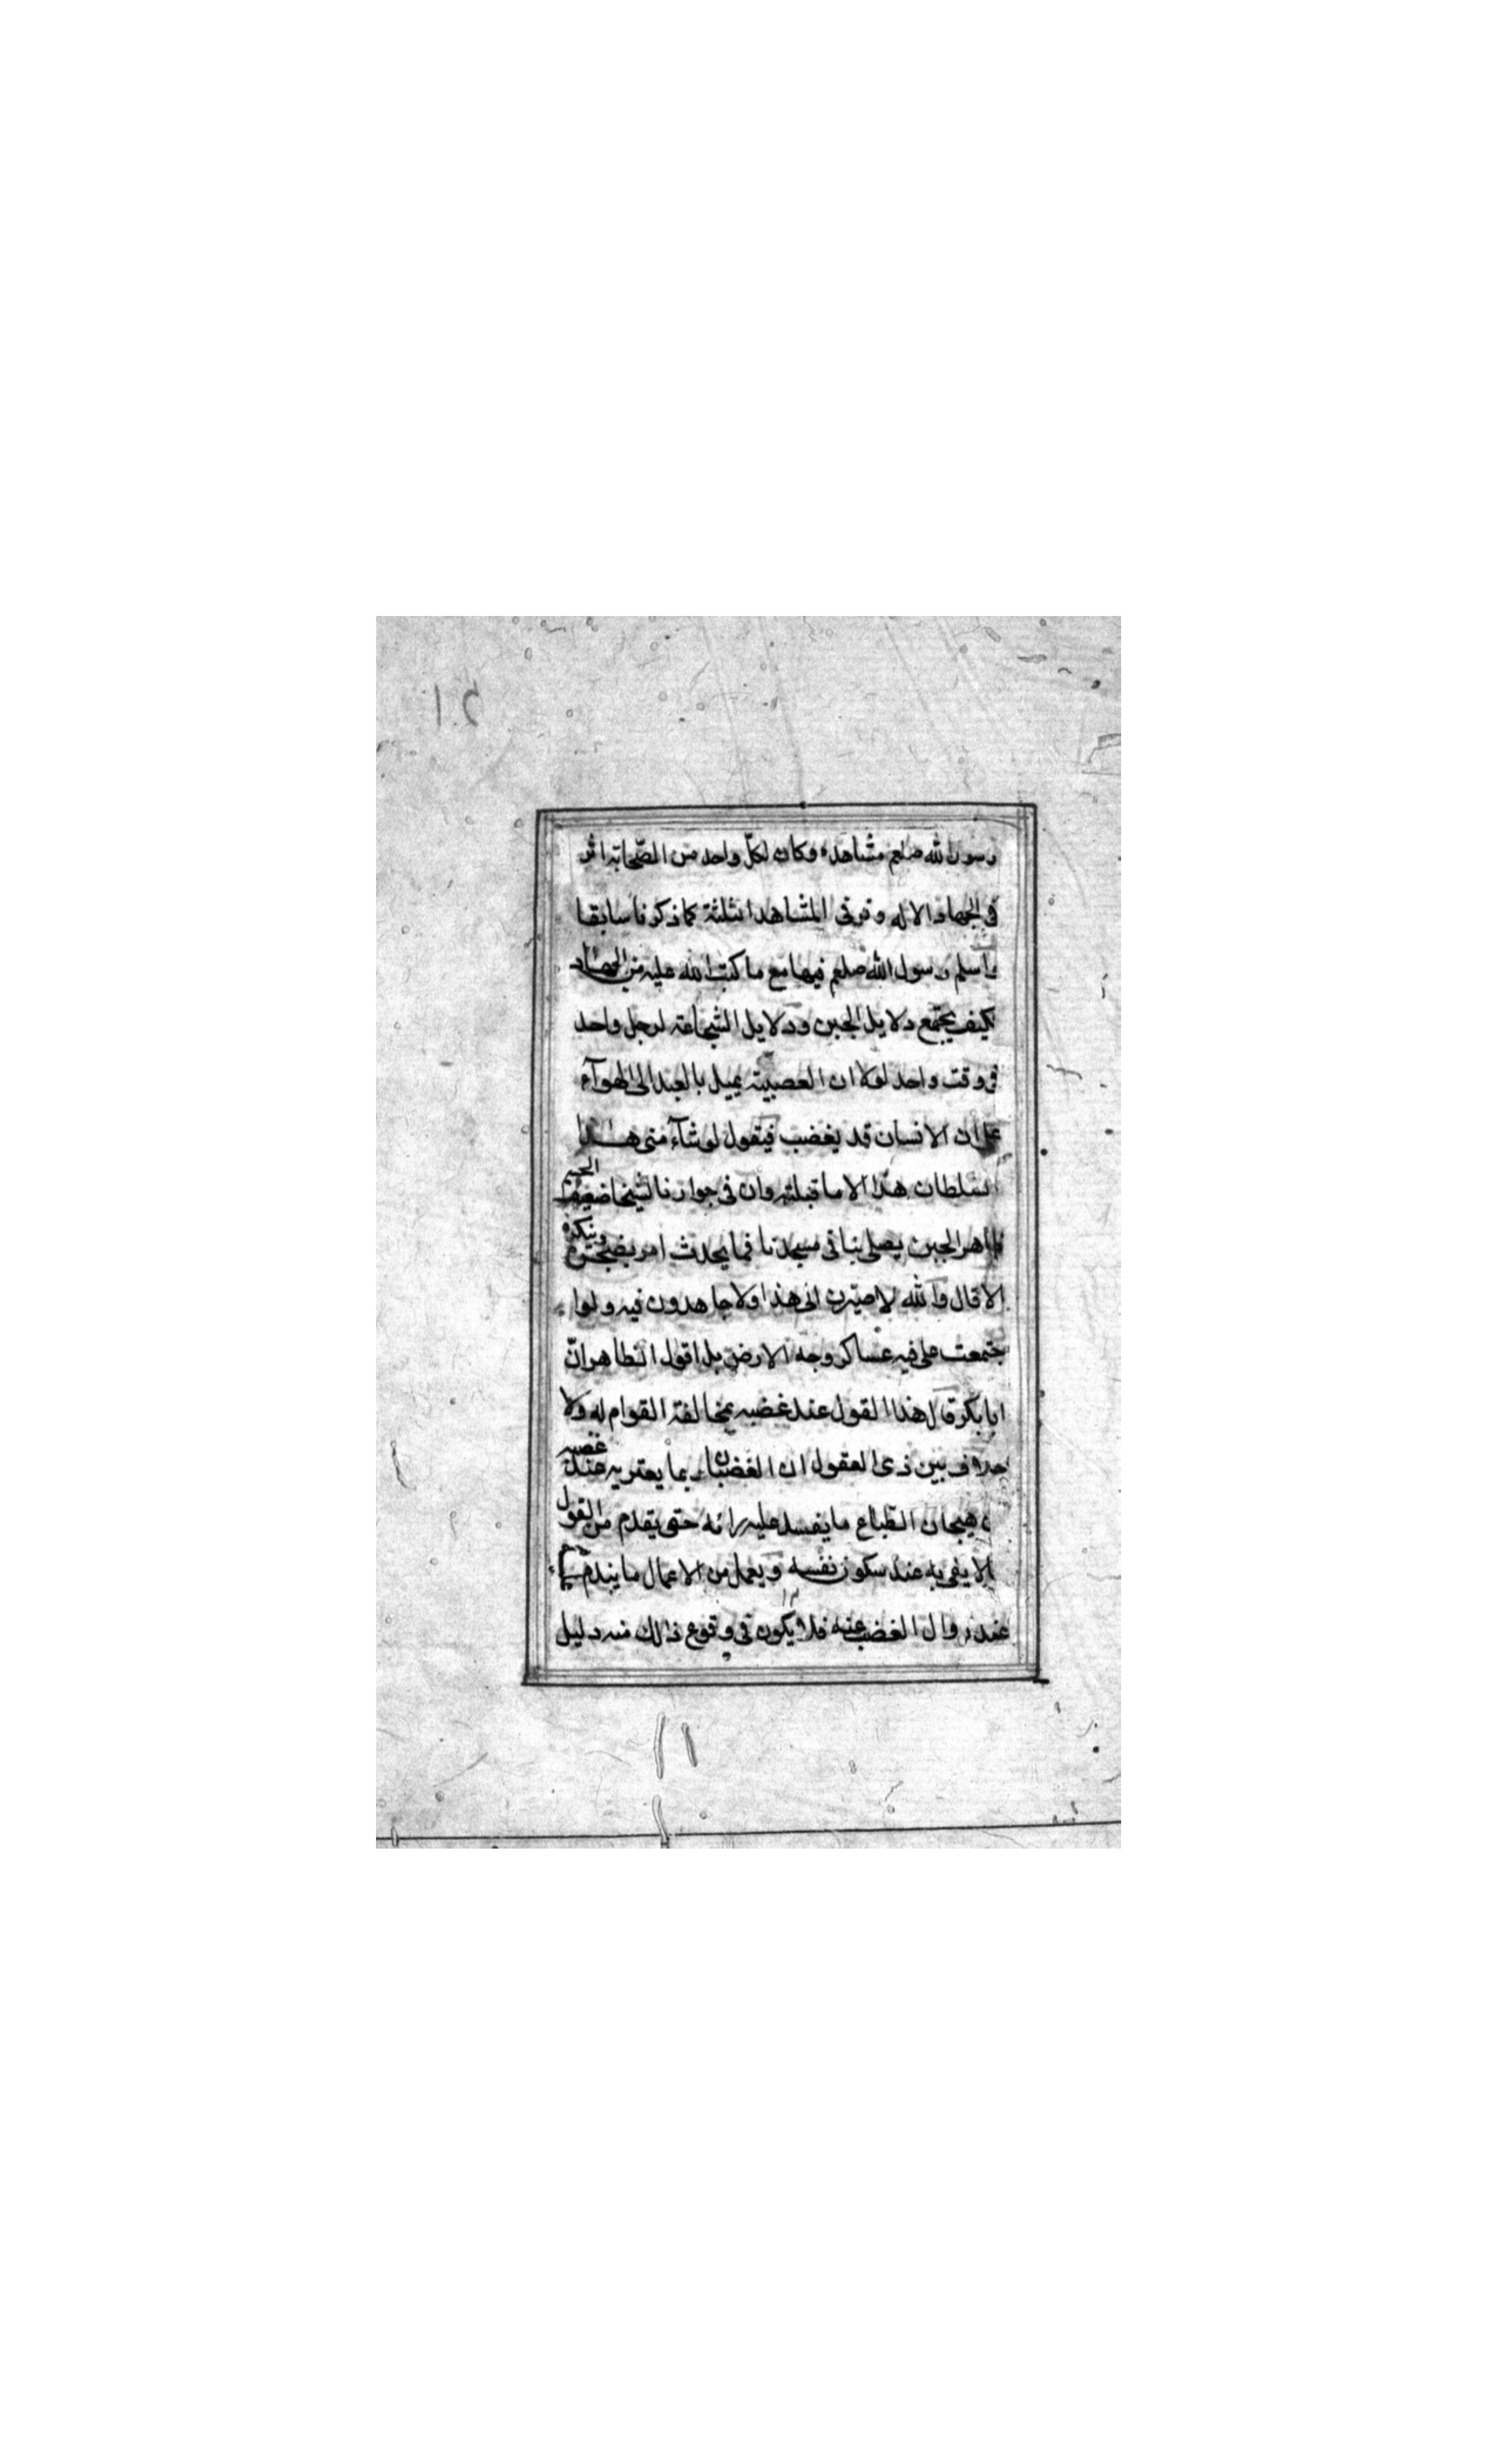 ١٠٢
رسول الله صلعم مشاهده وكان لكلّ واحد من الصّحابة اثر
فى الجهاد الا له وفر فى المشاهد الثلثة كما ذكرنا سابقا
واسلم رسول الله صلعم فيها مع ما كتب الله عليه من الجهاد
فكيف يجتمع دلايل الجبن ودلايل الشجاعة لرجل واحد
فى وقت واحد لولا ان العصبية يميل بالعبد الى الهوآء
على ان الانسان قد يغضب فيقول لو شآء منى هذا
السلطان هذا الامر ما قبلته وان فى جوارنا لشيخا ضعيف الجسم
ظاهر الجبن يصلى بنا فى مسجدنا فما يحدث امر يضجره وينكره
الا قال والله لاصيرن الى هذا ولا جاهدون فيه ولوا
جتمعت على فيه عساكر وجه الارض بل اقول الظاهر انّ
ابا بكر قال هذا القول عند غضبه بمخالفة القوام له ولا
خلاف بين ذى العقول ان الغضبان ربما يعتريه عند غضبه
هيجان الطباع ما يفسد عليه رائه حتى يقدم من القول
الا يفى به عند سكون نفسه ويعمل من الاعمال ما يندم
عند زوال الغضب عنه فلا يكون فى وقوع ذلك منه دليل